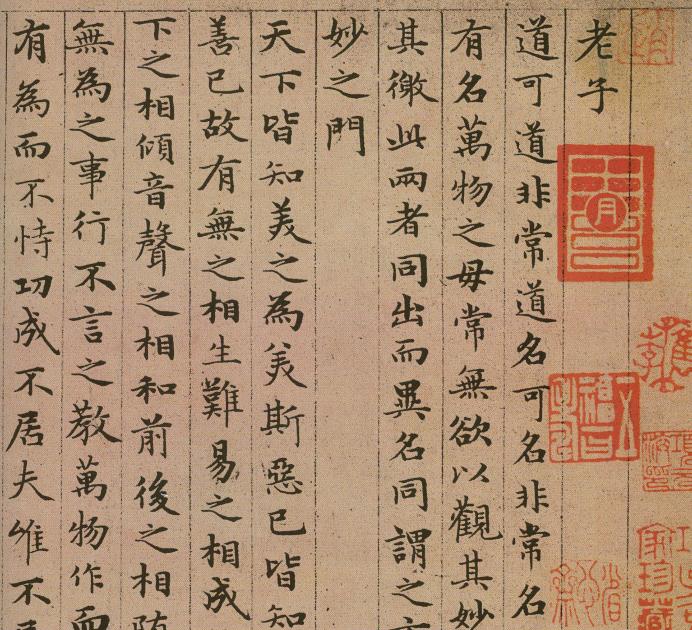 老子
道可道非常道名可名非常名
有名萬物之母常無欲以觀其妙
其徼此兩者同出而異名同謂之
妙之門
天下皆知美之為美斯惡已皆知
善已故有無之相生難易之相成
下之相傾音聲之相和前後之相随
無為之事行不言之教萬物作而
有為而不恃功成不居夫惟不
家珍藏